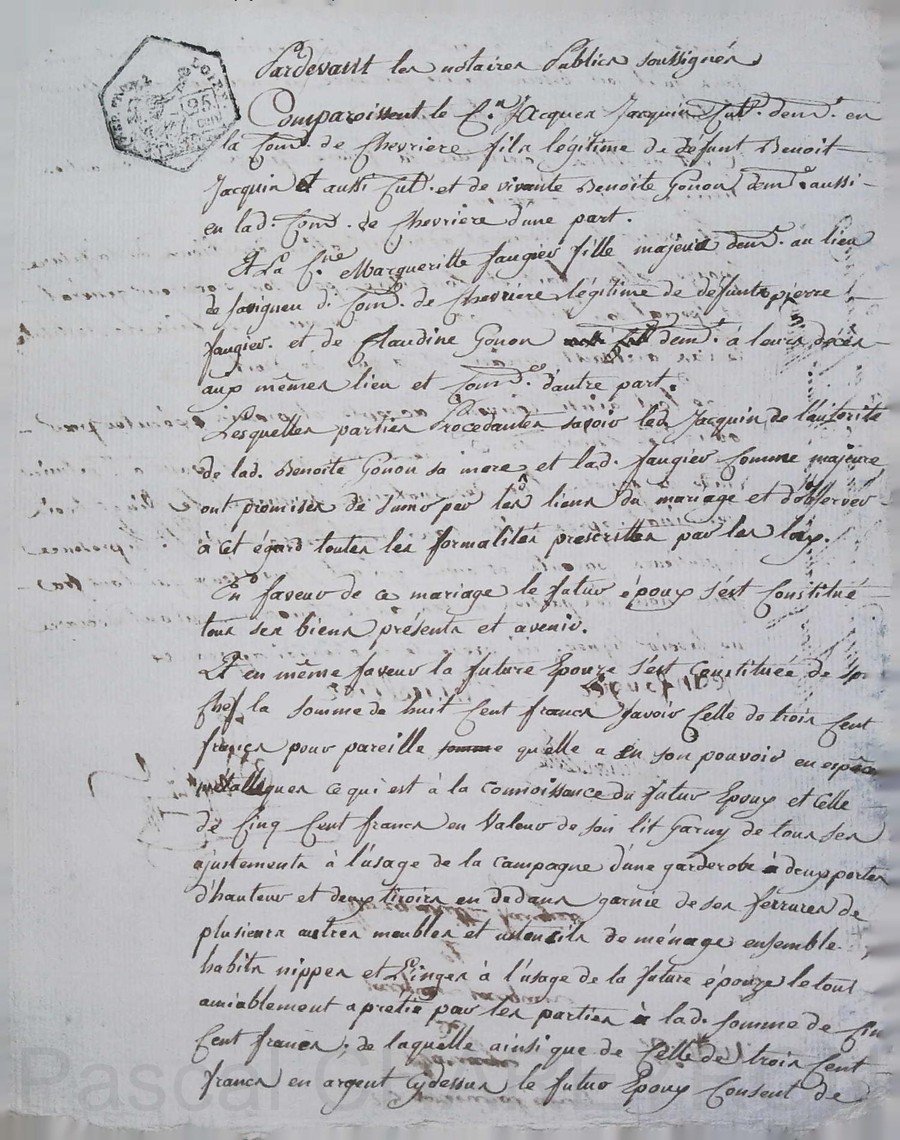 Pardevant les notaires Publics soussignés
Comparoissent le Cn. Jacques Jacquin Cult. demt. en
la Com. de Chevriere fils légitime de défunt Benoit
Jacquin et aussi Cult. et de vivante Benoite Gonon demt. aussi
en lad. Com. de Chevriere d'une part.
Et La Cne. Margueritte faugier fille majeure demt. au lieu
de savigneu d. Com. de Chevriere légitime de défunts pierre
faugier. et de Claudine Gonon demt. à leurs décès
aux mêmes lieu et Com. d'autre part.
Lesquelles parties Procedantes savoir led. Jacquin de l'autorité
de lad. Benoite Gonon sa mere et lad. faugier Comme majeure
ont promises de s'unir par les liens du mariage et d'observer
à cet égard toutes les formalités prescrittes par les loix.
En faveur de ce mariage le futur époux s'est Constitué
tous ses biens présents et avenir.
Et en même faveur la future Epouze s'est Constituée de son
chef la somme de huit Cent francs savoir Celle de trois Cent
francs pour pareille somme qu'elle a en son pouvoir en espèces
métalliques ce qui est à la connoissance du futur Epoux et Celle
de Cinq Cent francs en Valeur de son lit Garny de tous ses
ajustements à l'usage de la campagne d'une garderobe à deux portes
d'hauteur et deux tiroirs en dedans garnie de ses ferrures de
plusieurs autres meubles et ustensils de ménage ensemble
habits nippes et Linges à l'usage de la future épouze le tout
amiablement apretié par les parties à lad. somme de Cinq
Cent francs, de laquelle ainsi que de Celle de trois Cent
francs en argent Cydessus le futur Epoux Consent de
Pascal